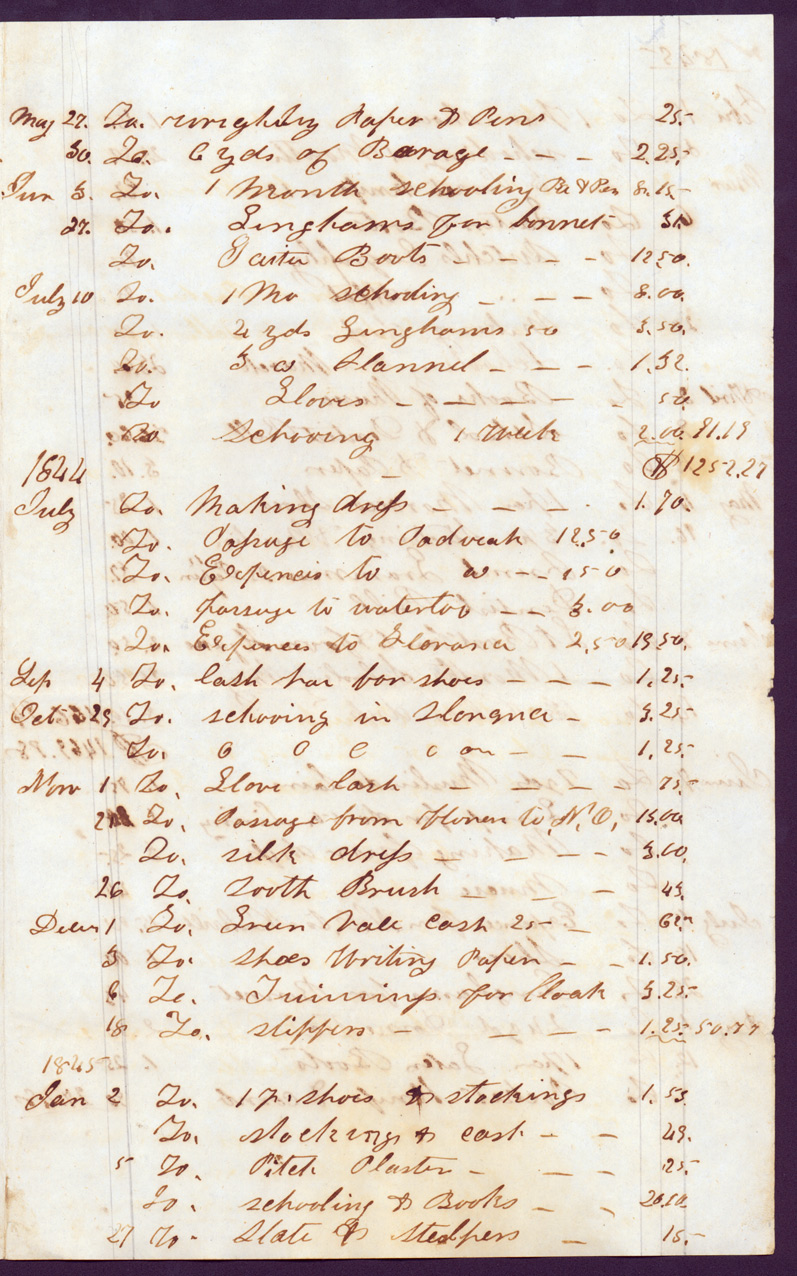 May 27. To. wrighting Paper & Pens 25-
30. To. 6 yds of Barage - - - 2.25-
Jun 3. To. 1 Month schooling Bk & Pen 8.15-
27. To. Linghams for bonnet 31
To. Gaiter Boots - - - 1250.
July 10 To. 1 Mo schooling - - - - 8.00
To. yds Linghams 50 3.50.
To. 3 Flannel - - - 1.32.
To Gloves - - - - - 50
To Schooing 1 Week 2.00. 91.19
1844 $ 1252.27
July To. Making dress - - - - 1.70.
To. Passage to Paducah 12.50
To. Expences to - - 1.50
To. passage to watertoo - - 3.00
To. Expences to Florance 2.50 19.50.
Sep 4 To. Cash for shoes - - - - 1.25-
Oct 29 To. schooing in Florance - 3.25-
To. - - 1.25-
Nov 1 To. Glove Cash - - - 75-
To. Passage from floren to N.O. 15.00
To. silk dress - - - - 3.00
26 To. Tooth Brush - - - - 43.
Decm 1 To. Green Vale Cash 25- -
3 To. Shoes Writing Paper - - 1.50.
6 To. Trimmings for Cloak 3.25-
18 To. slippers - - - 1.25- 50.77
1845
Jan 2 To. 1 P. shoes & stockings 1.53
To. stockings & cash - - 43.
5 To. Pitch Plaster - - - 25-
To. schooling & Books - -
27 To. Slate & - 15.-